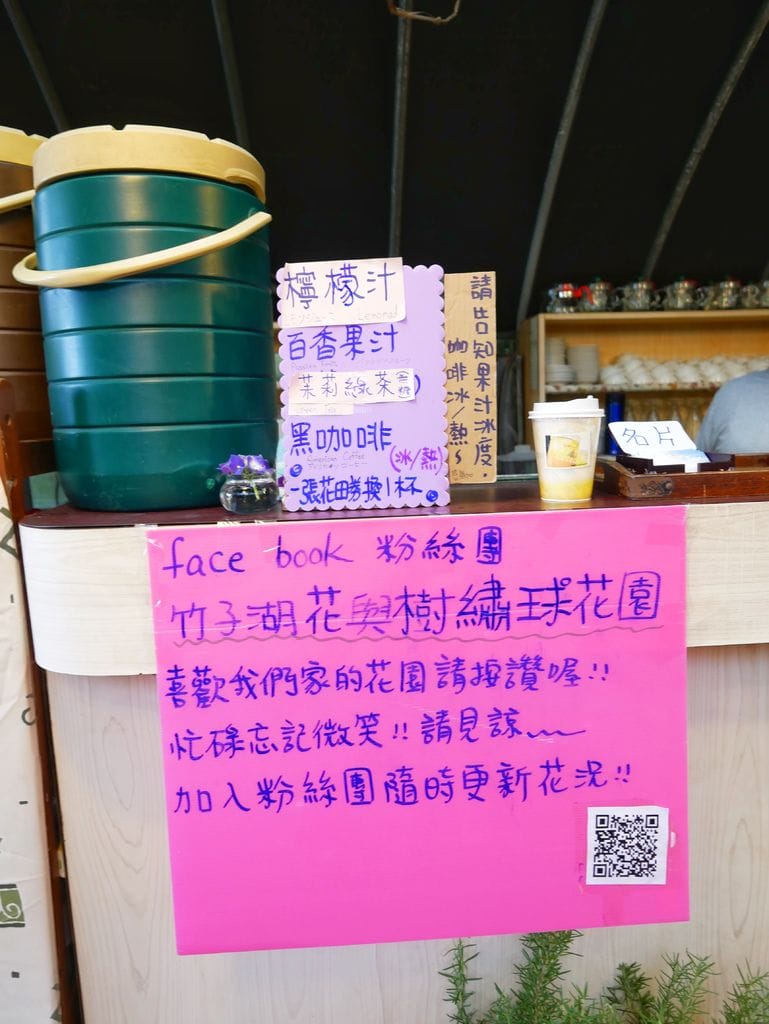 檸檬汁
Lemonad
百香果汁
茉莉綠茶(無糖)
Green Tea
黑咖啡
American Coffee
(冰/熱)
一張花田券換1杯
請告知果汁冰度。
咖啡冰/熱
名片
face book 粉絲團
竹子湖花與樹繡球花園
喜歡我們家的花園請按讚喔!!
忙碌忘記微笑!!請見諒~~
加入粉絲團隨時更新花況!!